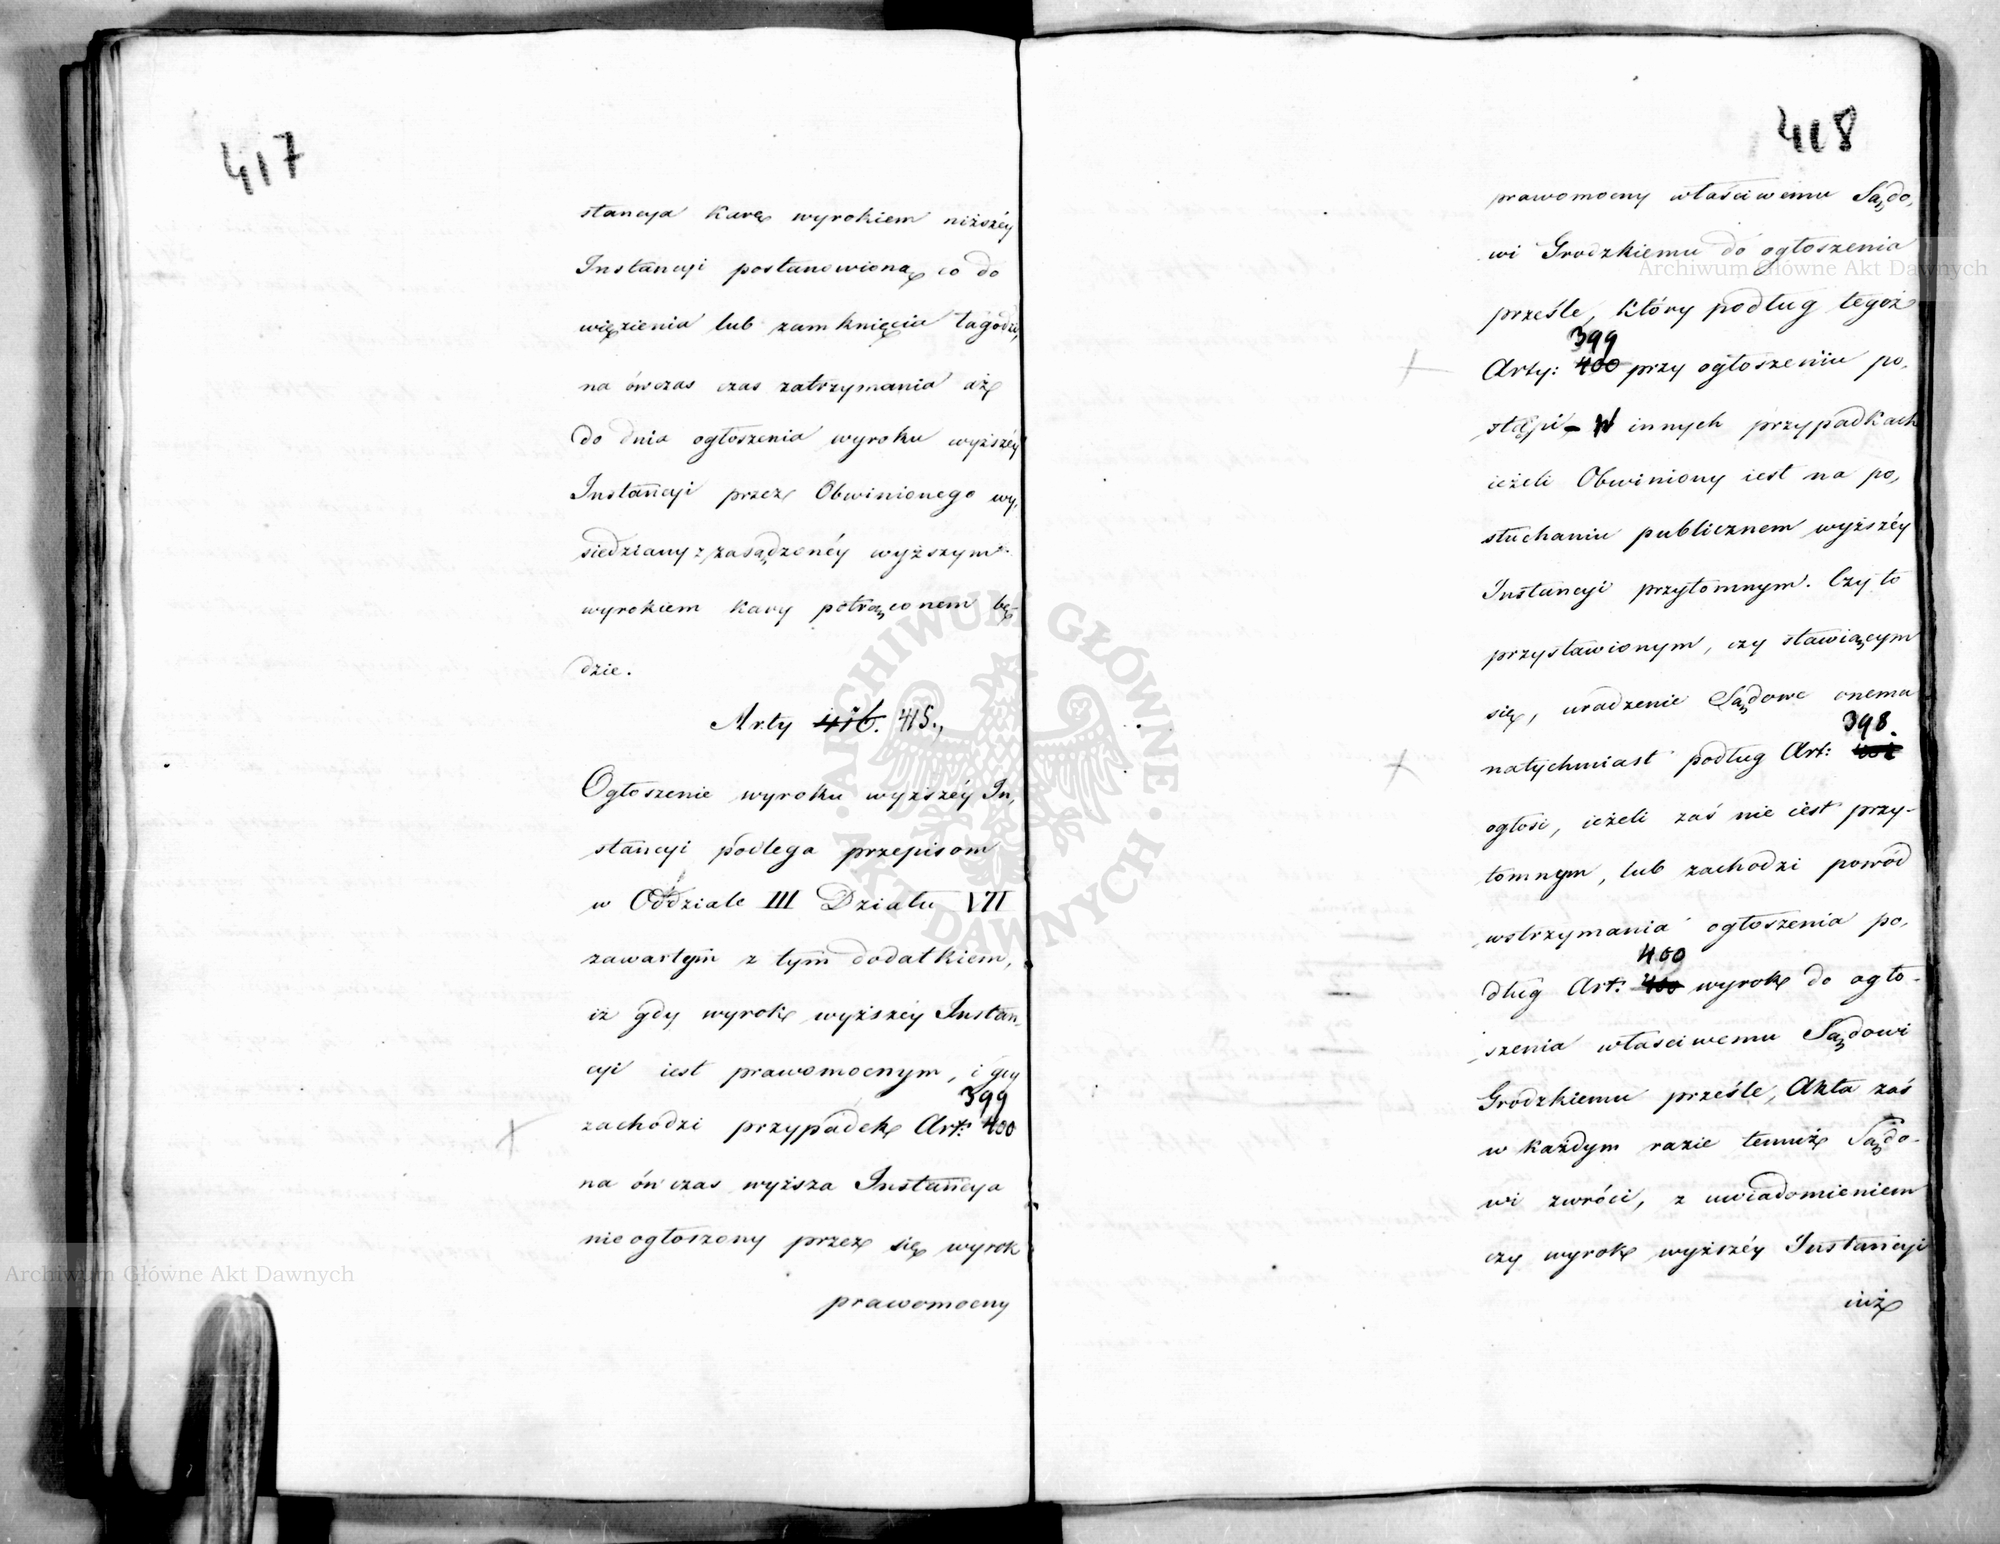 417
stancya karę wyrokiem niższéy
Instancyi postanowioną co do
więzienia lub zamknięcia łagodzi,
na ówczas czas zatrzymania aż
do dnia ogłoszenia wyroku wyższéy
Instancyi przez Obwinionego wy,
siedziany z zasądzonéy wyższym
wyrokiem kary potrąconem bę-
dzie.
Arty 416. 415.,
Ogłoszenie wyroku wyższéy In,
stancyi podlega przepisom
w Oddziale III Działu VII
zawartym z tym dodatkiem,
iż gdy wyrok wyższéy Instan-
cyi iest prawomocnym, i gdy
399
zachodzi przypadek Art: 400
na ówczas wyższa Instancya
nieogłoszony przez się wyrok
prawomocny
418
prawomocny właściwemu Sądo,
wi Grodzkiemu do ogłoszenia
prześle, który podług tegoż
399
Arty: 400 przy ogłoszeniu po,
stąpi - W innych przypadkach
ieżeli Obwiniony iest na po,
słuchaniu publicznem wyższéy
Instancyi przytomnym. Czy to
przystawionym, czy stawiącym
się, uradzenie Sądowe onemu
398.
natychmiast podług Art:
ogłosi, ieżeli zaś nie iest przy-
tomnym, lub zachodzi powód
wstrzymania ogłoszenia po,
400
dług Art: wyrok do ogło-
szenia właściwemu Sądowi
Grodzkiemu prześle, Akta zaś
w każdym razie temuż Sądo-
wi zwróci, z uwiadomieniem
czy wyrok wyższéy Instancyi
iuż
Archiwum Główne Akt Dawnych
Archiwum Główne Akt Dawnych
ARCHIWUM GŁÓWNE
AKT DAWNYCH